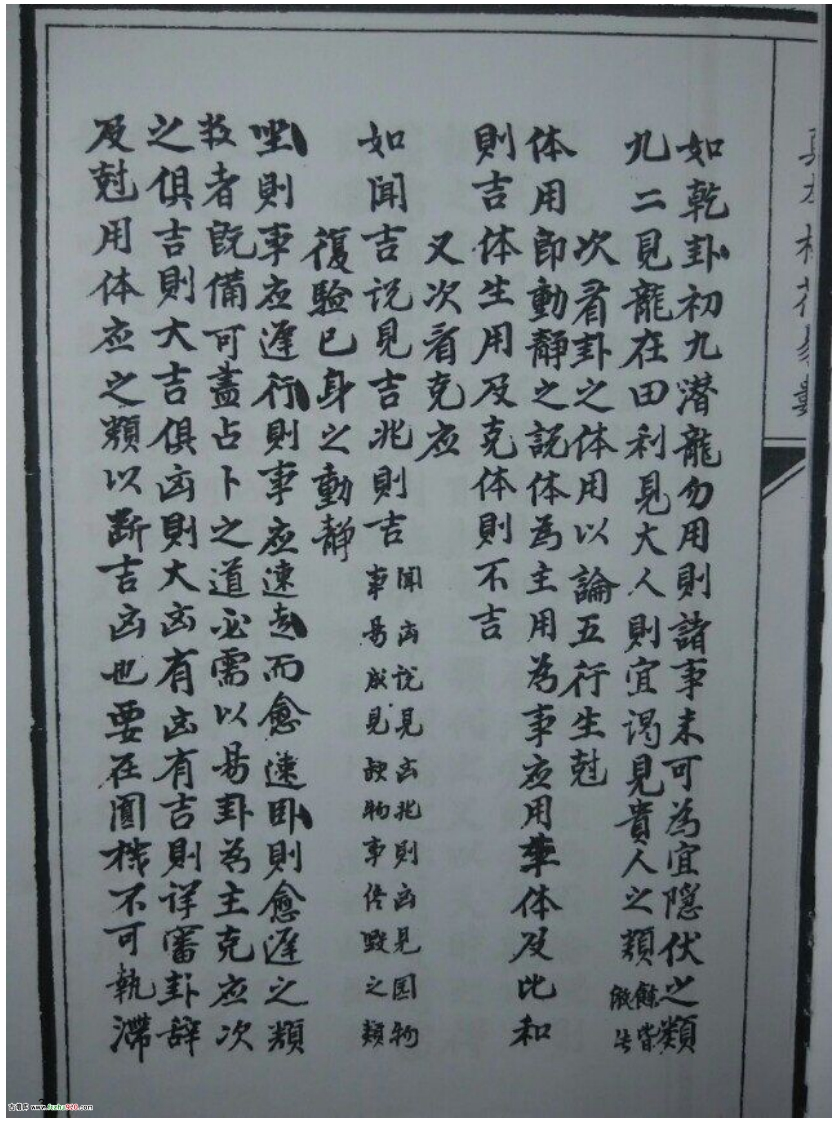 如乾卦初九潛龍勿用則諸事未可為宜隱伏之類
九二見龍在田利見大人則宜謁見貴人之類餘皆
次看卦之体用以論五行生尅
体用即動靜之説体為主用為事应用
体及比和
則吉体生用及克体則不吉
又次看克应
如聞吉说見吉兆則吉
聞凶说見凶兆則凶見圆物
事易成見缺物事俻毀之類
復驗已身之動靜
坐則事应遲行則事应速走而愈速卧則愈遲之類
者既備可盡占卜之道必需以易卦為主克应次
之俱吉則大吉俱凶則大凶有凶有吉則详審卦辞
及尅用体应之類以断吉凶也要在圓機不可執滯
古籍网 www.fozhu920.com